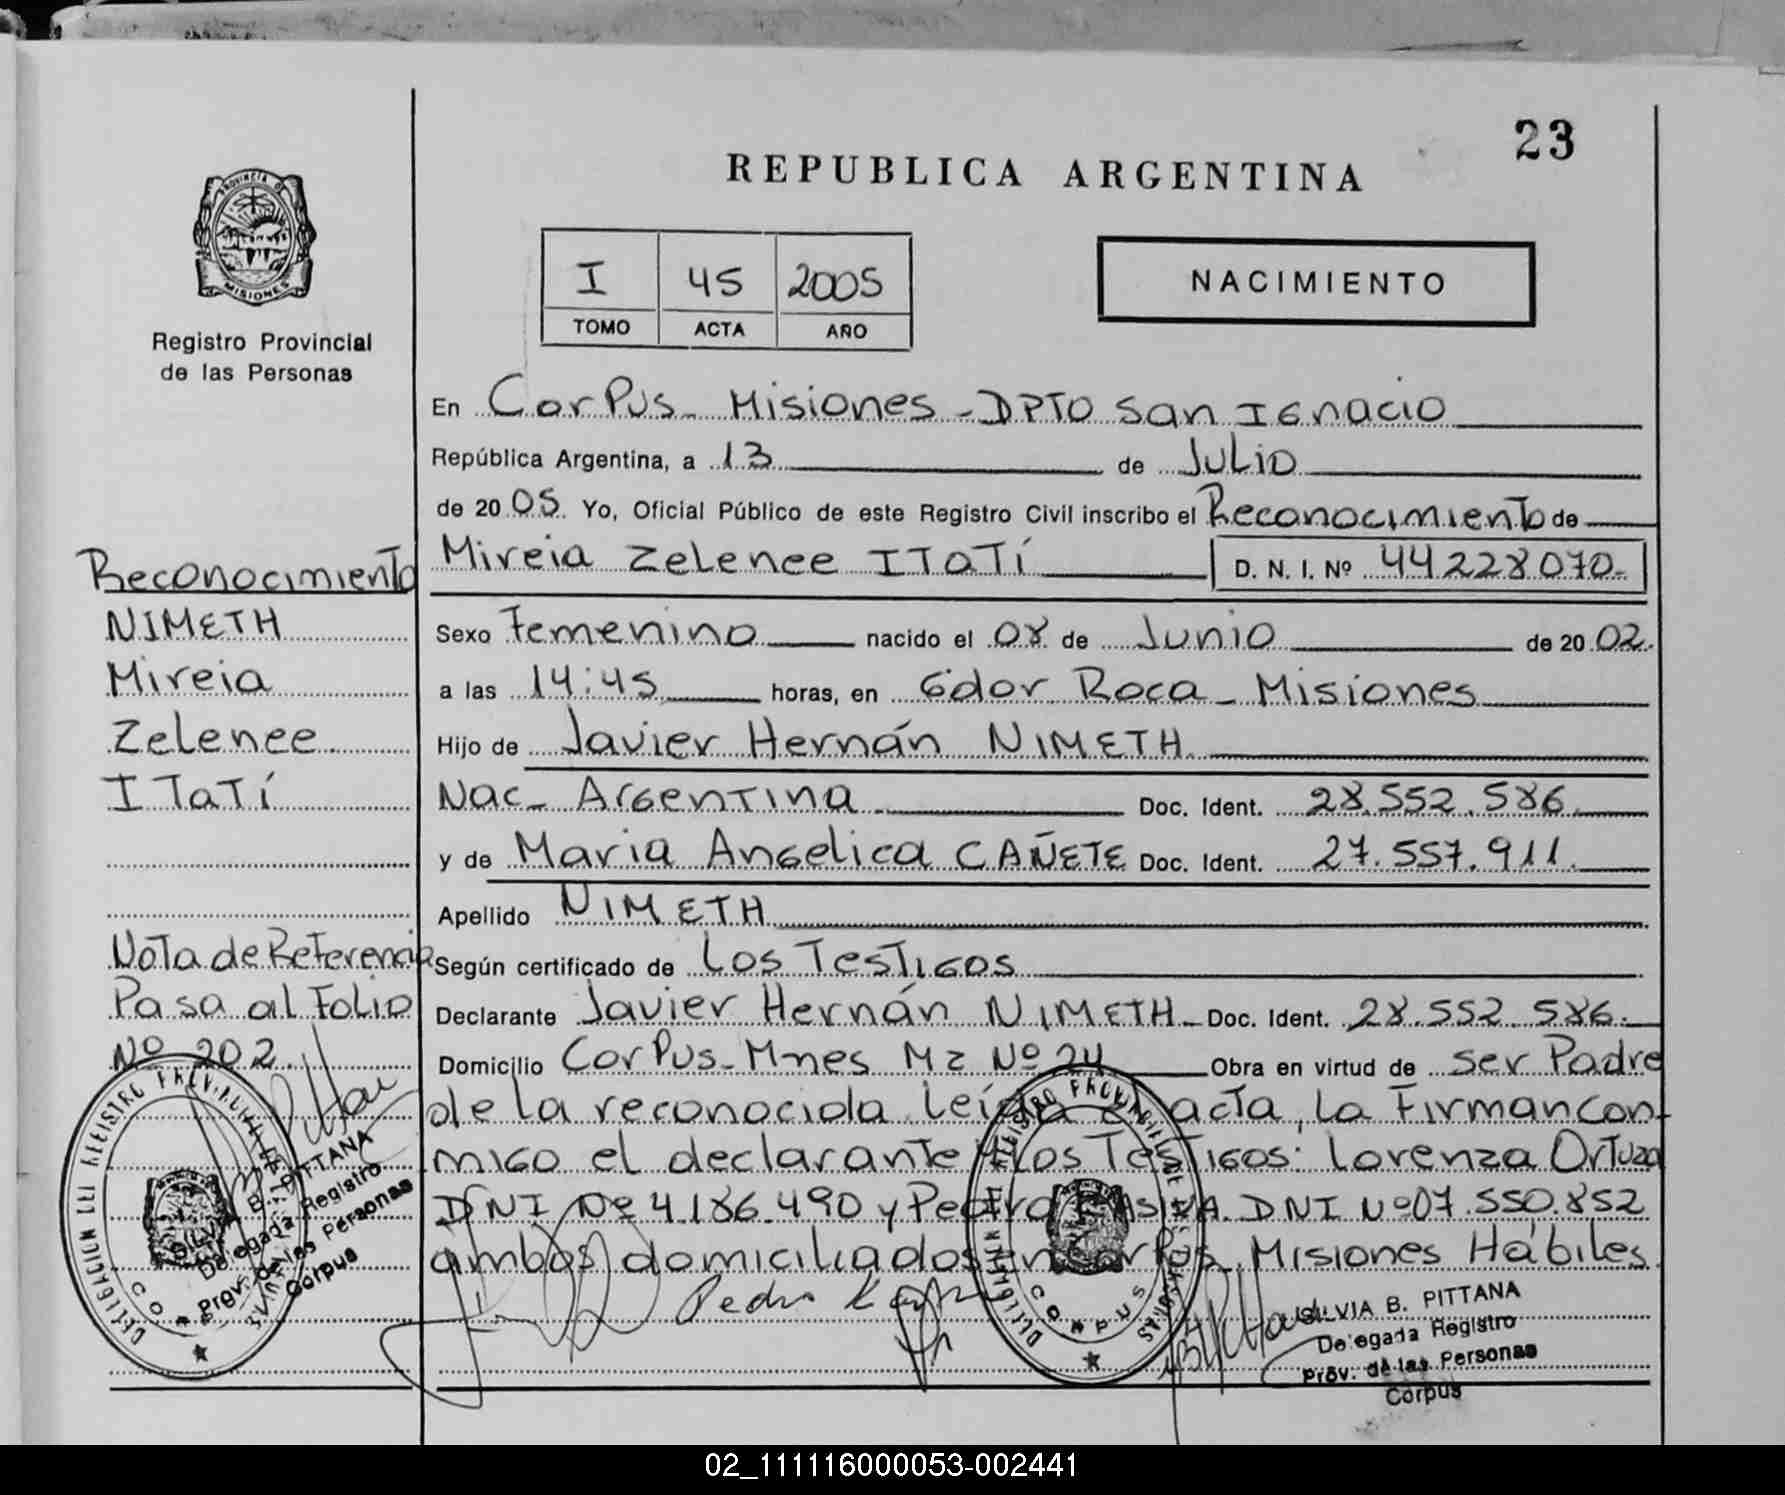 23
REPUBLICA ARGENTINA
PROVINCIA DE
MISIONES
Registro Provincial
de las Personas
I 45 2005
TOMO ACTA AÑO
NACIMIENTO
En Corpus - Misiones - DPTO San Ignacio
República Argentina, a 13 de Julio
de 2005 Yo, Oficial Público de este Registro Civil inscribo el Reconocimiento de
Mireia Zelenee ITATÍ D. N. I. Nº 44228070-
Sexo Femenino nacido el 08 de Junio de 2002.
a las 14:45 horas, en Gdor Roca - Misiones
Hijo de Javier Hernán NIMETH
Nac- Argentina Doc. Ident. 28.552.586.
y de Maria Angelica CAÑETE Doc. Ident. 27.557.911.
Apellido NIMETH
Según certificado de Los Testigos
Declarante Javier Hernán NIMETH - Doc. Ident. 28.552.586.-
Domicilio Corpus - Mnes Mz Nº 24 Obra en virtud de ser Padre
de la reconocida. Leída acta, la Firman con-
migo el declarante y los Testigos: Lorenza Ortuza
DNI Nº 4.186.490 y Pedro DNI Nº 07.550.852
ambos domiciliados en Corpus - Misiones Hábiles.
Pedro
SILVIA B. PITTANA
Delegada Registro
Prov. de las Personas
Corpus
Reconocimiento
NIMETH
Mireia
Zelenee
ITATÍ
Nota de Referencia
Pasa al Folio
Nº 202.
SILVIA B. PITTANA
Delegada Registro
Prov. de las Personas
Corpus
02_111116000053-002441